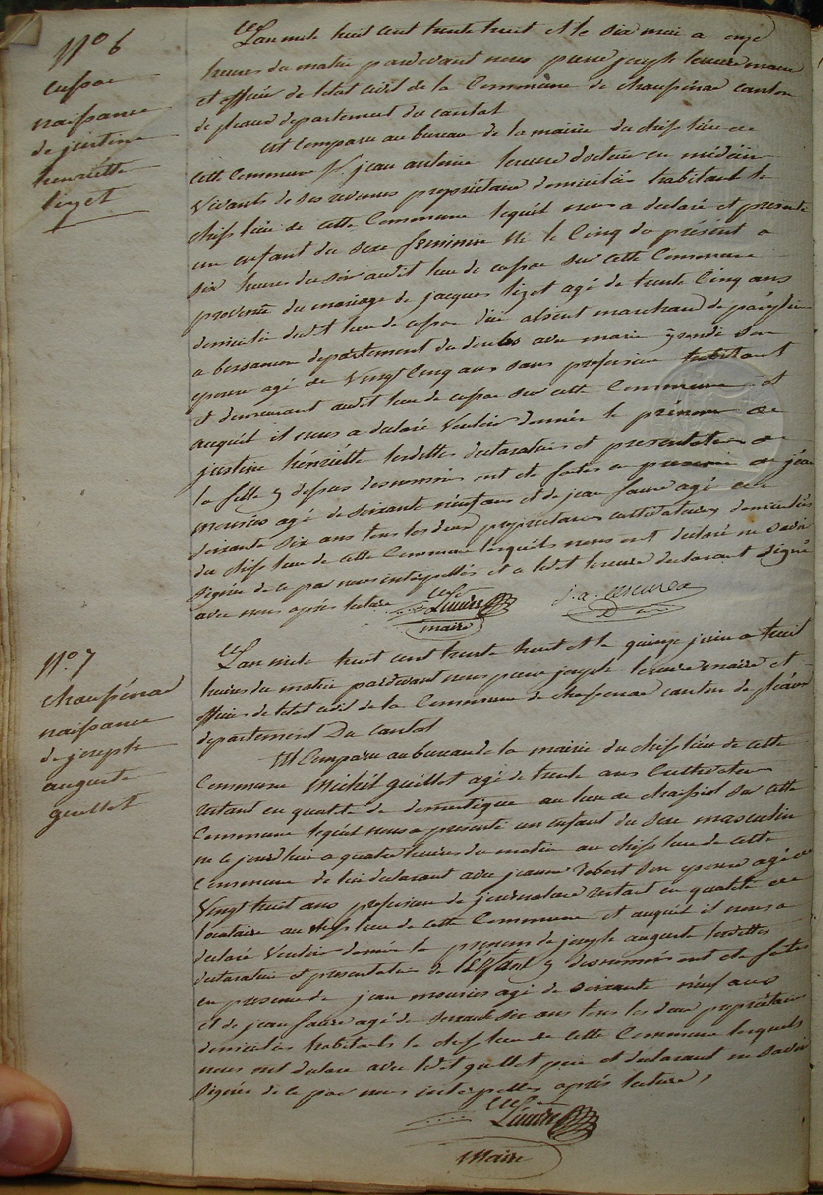 N° 6
cussac
naissance
de justine
henriette
lizet
L'an mile huit cent trente huit et le six mai a onze
heures du matin pardevant nous pierre joseph lescure maire
et officier de letat civil de la Commune de chaussenac canton
de pleaux departement du cantal
Est Comparu au bureau de la mairie du chef lieu de
cette Commune Sr. jean antoine lescure docteur en médecin
Vivants de ses revenus propriétaire domiciliés habitant le
chef lieu de cette Commune lequel nous a declaré et presenté
un enfant du sexe feminin né le Cinq du présent a
six heures du soir audit lieu de cussac sur cette Commune
provenu du mariage de jacques lizet agé de trente Cinq ans
domicilié dudit lieu de cussac absent marchand de
a besancon departement du doubs avec marie son
epouse agé de Vingt Cinq ans sans profession habitant
et demeurant audit lieu de cussac sur cette Commune et
auquel il nous a déclaré Vouloir donner le prénom de
justine henriette lesdittes declaration et presentation de
la fille y dessus denommé ont eté faites en presence de jean
mourios agé de soixante neuf ans et de jean faure agé de
soixante six ans tous les deux propriétaires cultivateurs domiciliés
du chef lieu de cette Commune lesquels nous ont declaré ne savoir
signer de ce par nous interpellés et a ledit lescure declarant signé
avec nous après lecture
Lescure
maire
j. a. Lescure
N° 7
chaussenac
naissance
de joseph
auguste
guillot
L'an mile huit cent trente huit et le quinze juin a huit
heures du matin pardevant nous pierre joseph lescure maire et
officier de letat civil de la Commune de chaussenac canton de pléaux
departement Du Cantal
Est Comparu au bureau de la mairie du chef lieu de cette
Commune Michel guillot agé de trente ans Cultivateur
restant en qualité de domestique au lieu de sur cette
Commune lequel nous a presenté un enfant du sexe masculin
né ce jourdhui a quatre heures du matin au chef lieu de cette
Commune de lui declarant avec jeanne robert son epouse agé de
Vingt huit ans profession de journaliere restant en qualité de
locataire au chef lieu de cette Commune et auquel il nous a
declaré Vouloir donner le prenom de joseph auguste lesdittes
declaration et presentation de lenfant y denommé ont eté faites
en presence de jean mourios agé de soixante neuf ans
et de jean faure agé de soixante six ans tous les deux propriétaires
domiciliés habitants le chef lieu de cette Commune lesquels
nous ont declaré avec ledit guillot pere et declarant ne savoir
signer de ce par nous interpellés après lecture,
Lescure
Maire